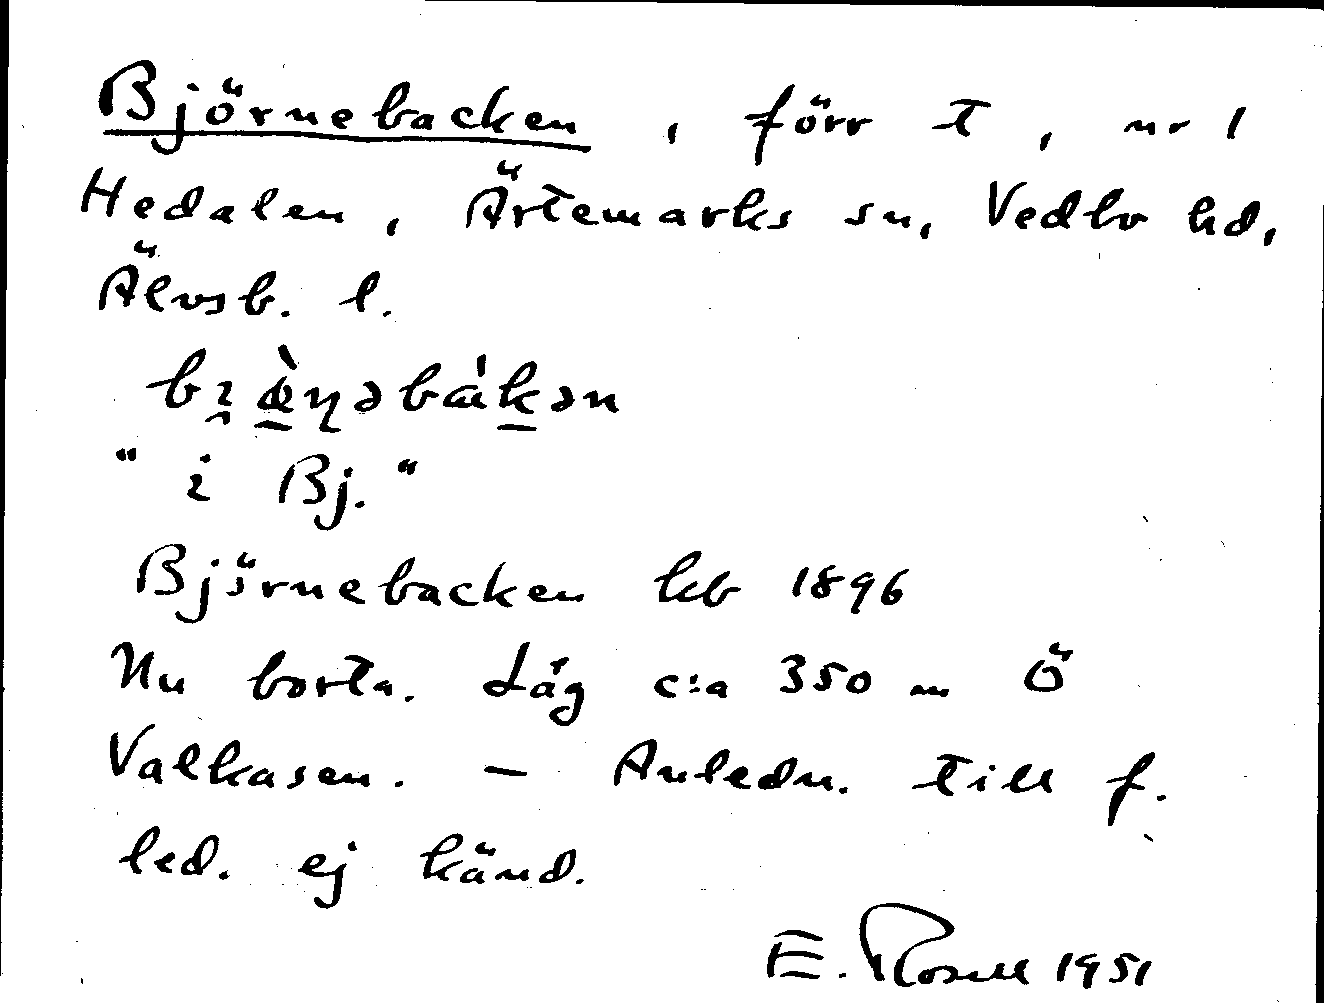 Björnebacken, förr t, nr 1
Hedalen, Ärtemarks sn, Vedbo hd,
Älvsb. l.
"i Bj."
Björnebacken kb 1896
Nu borta. Låg c:a 350 m Ö
Valkasen. — Anledn. till f.
led. ej känd.
E. Rosell 1951